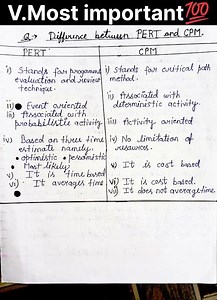 V.Most important💯
Q→ Difference between PERT and CPM.
PERT
CPM
i) Stands for programme
evaluation and review
technique.
ii) Event oriented
iii) Associated with
probabilistic activity.
iv) Based on three time
estimate namely.
• optimistic • pessimistic
• Most likely
v) It is time based
vi) It averages time
i) Stands for critical path
method.
ii) Associated with
deterministic activity.
iii) Activity oriented
iv) No limitation of
resources.
v) It is cost based
vi) It is cost based.
vii) It does not average time